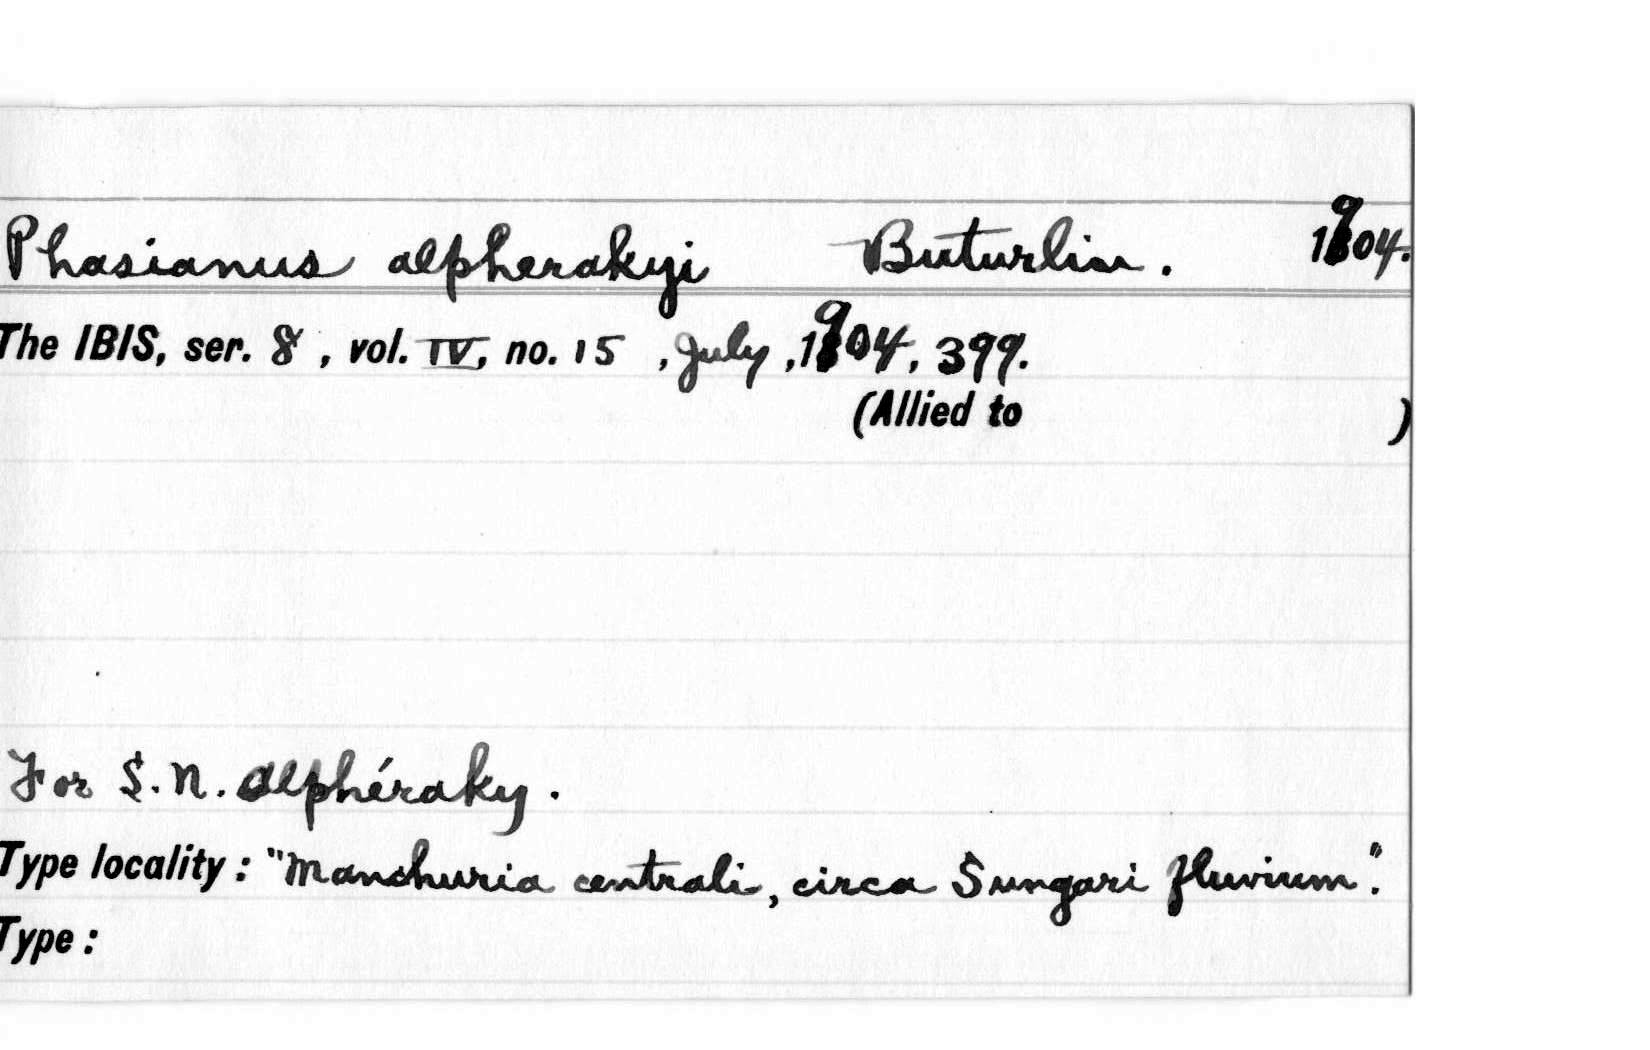 Phasianus alpherakyi Buturlin. 1904.
The IBIS, ser. 8, vol. IV, no. 15, July, 1904, 399.
(Allied to )
For S. N. Alphéraky.
Type locality: "Manchuria centrali, circa Sungari fluvium".
Type: